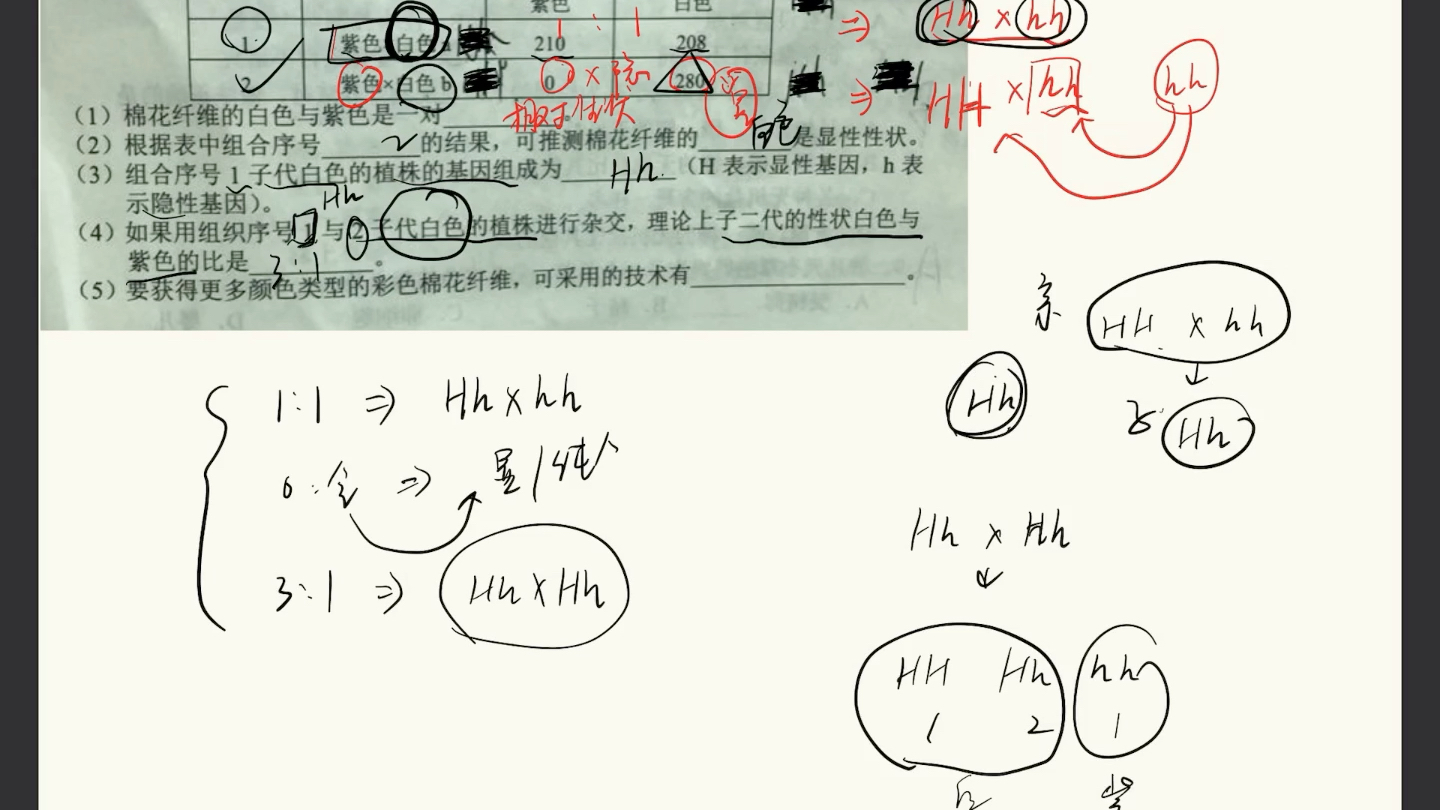 紫色 白色
1 紫色×白色a 210 208 1 : 1 ⇒ Hh × hh
2 紫色×白色b 0 280 × 隐 显 ⇒ HH × hh hh
(1)棉花纤维的白色与紫色是一对 相对性状 。
(2)根据表中组合序号 2 的结果,可推测棉花纤维的 白色 是显性性状。
(3)组合序号1子代白色的植株的基因组成为 Hh (H表示显性基因,h表
示隐性基因)。 Hh
(4)如果用组织序号1与2子代白色的植株进行杂交,理论上子二代的性状白色与
紫色的比是 3:1 。
(5)要获得更多颜色类型的彩色棉花纤维,可采用的技术有 。
亲 HH × hh
Hh 子 Hh
1:1 ⇒ Hh×hh
0:全 ⇒ 显/纯
3:1 ⇒ Hh×Hh
Hh × Hh
HH Hh hh
1 2 1
紫